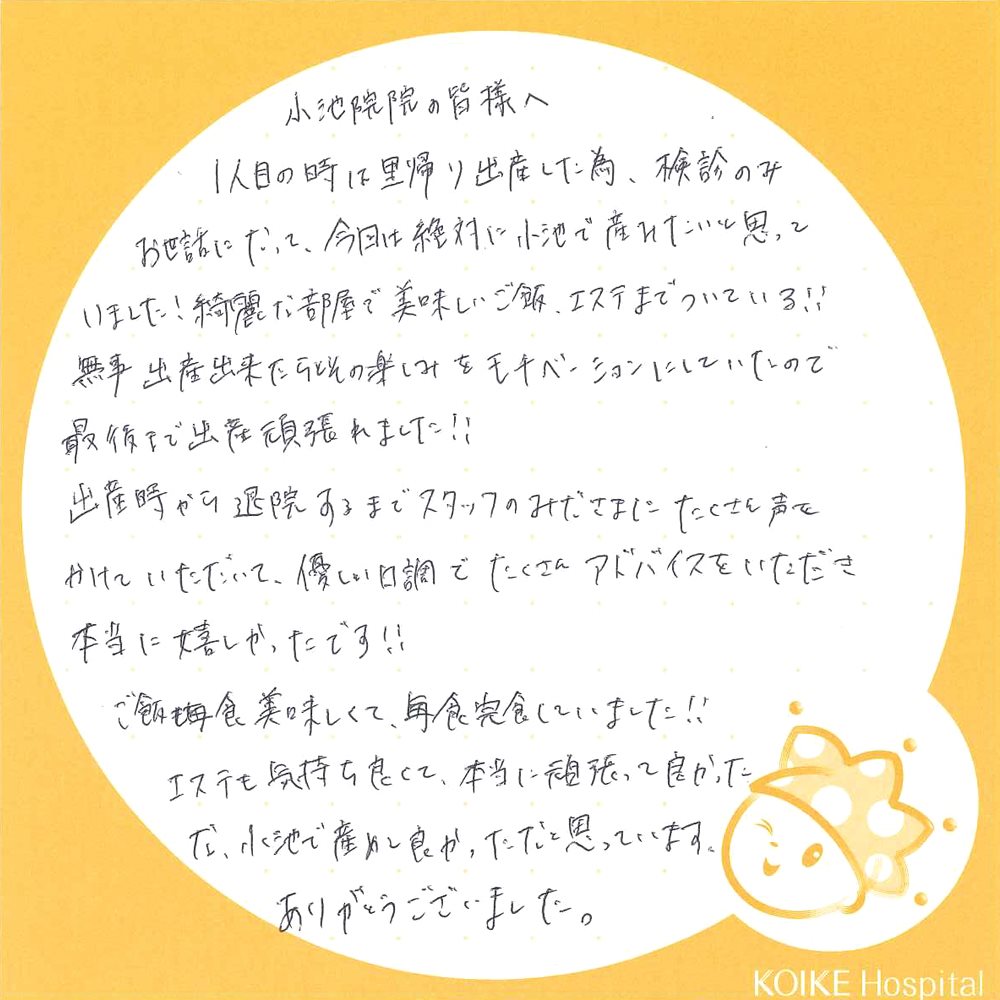 小池院院の皆様へ
1人目の時は里帰り出産した為、検診のみ
お世話になって、今回は絶対に小池で産みたいと思って
いました!綺麗な部屋で美味しいご飯、エステまでついている!!
無事出産出来たらとその楽しみをモチベーションにしていたので
最後まで出産頑張れました!!
出産時から退院するまでスタッフのみなさまにたくさん声を
かけていただいて、優しい口調でたくさんアドバイスをいただき
本当に嬉しかったです!!
ご飯も毎食美味しくて、毎食完食していました!!
エステも気持ち良くて、本当に頑張って良かった
な、小池で産めて良かったなと思っています。
ありがとうございました。
KOIKE Hospital